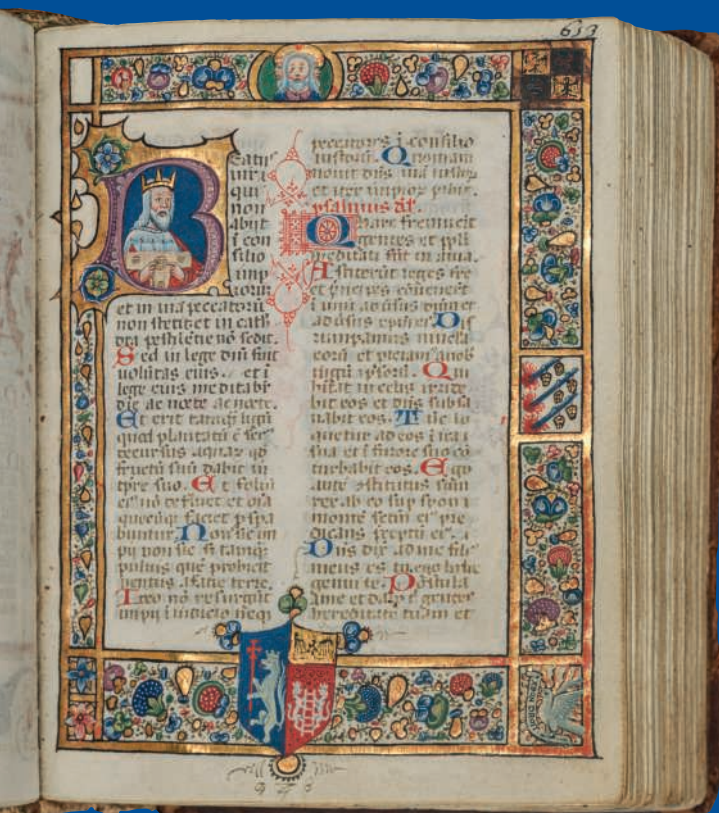 653
Beatus
uir
qui
non
abijt
i con
silio
imp
iorū
et in uia peccatorū
non stetit et in cath
dra pestilētie nō sedit.
Sed in lege dñi fuit
uolūtas eius . et i
lege eius meditabr
die ac nocte ac nocte.
Et erit tamq̄ lignū
quod plantatū ē secꝰ
decursus aquaꝝ qd
fructū suū dabit in
tpre suo. Et foliū
eiꝰ nō defluet et oīa
quecūq; faciet pspa
buntur. Non sic im
pij non sic s; tamq̄
puluis quē prohicit
uentus a facie terre.
Ideo nō resurgūt
impij i iudicio neq;
peccatores i consilio
iustorū. Quoniam
nouit dñs uiā iustoꝝ
et iter impioꝝ pibit.
psalmus dd.
Quare fremuerūt
gentes et ppli
meditati sūt inania.
Astiterūt reges tre
et pncipes cōuenerūt
i unū adūsus dñm et
adūsus xpm eiꝰ. Dis
rumpamus uincla
eorū et piciamꝰ a nob
iugū ipsorū. Qui
hitat in celis irride
bit eos et dñs subsā
nabit eos. Tūc lo
quetur ad eos i ira
sua et i furore suo cō
turbabit eos. Ego
autē ↄstitutus sum
rex ab eo sup syon
montē sctm eiꝰ pre
dicans preceptū eiꝰ.
Dñs dix ad me filiꝰ
meus es tu ego hodie
genui te. Postula
a me et dabo t gentes
hereditatē tuam et